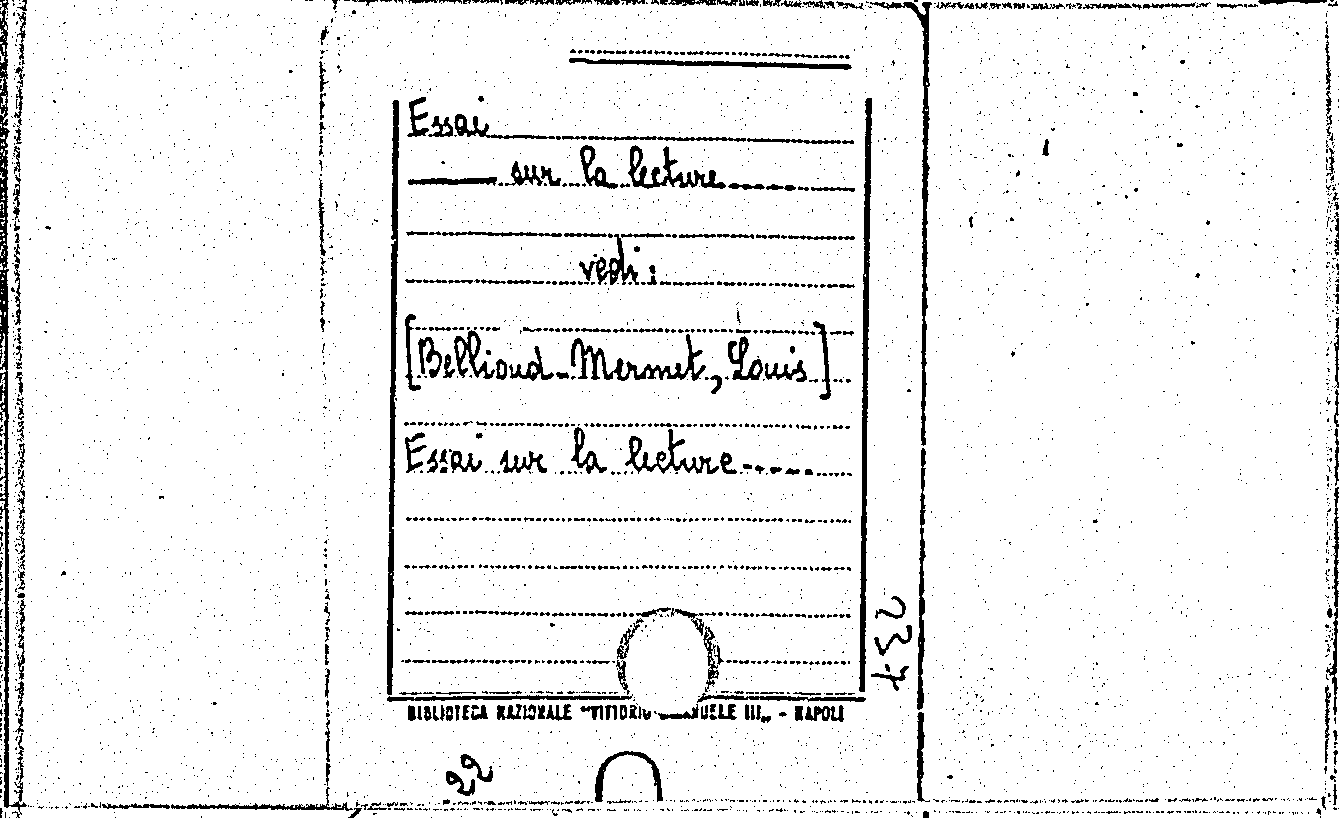 Essai
—— sur la lecture......
vedi:
[Bellioud-Mermet, Louis]
Essai sur la lecture......
BIBLIOTECA NAZIONALE "VITTORIO EMANUELE III„ - NAPOLI
22